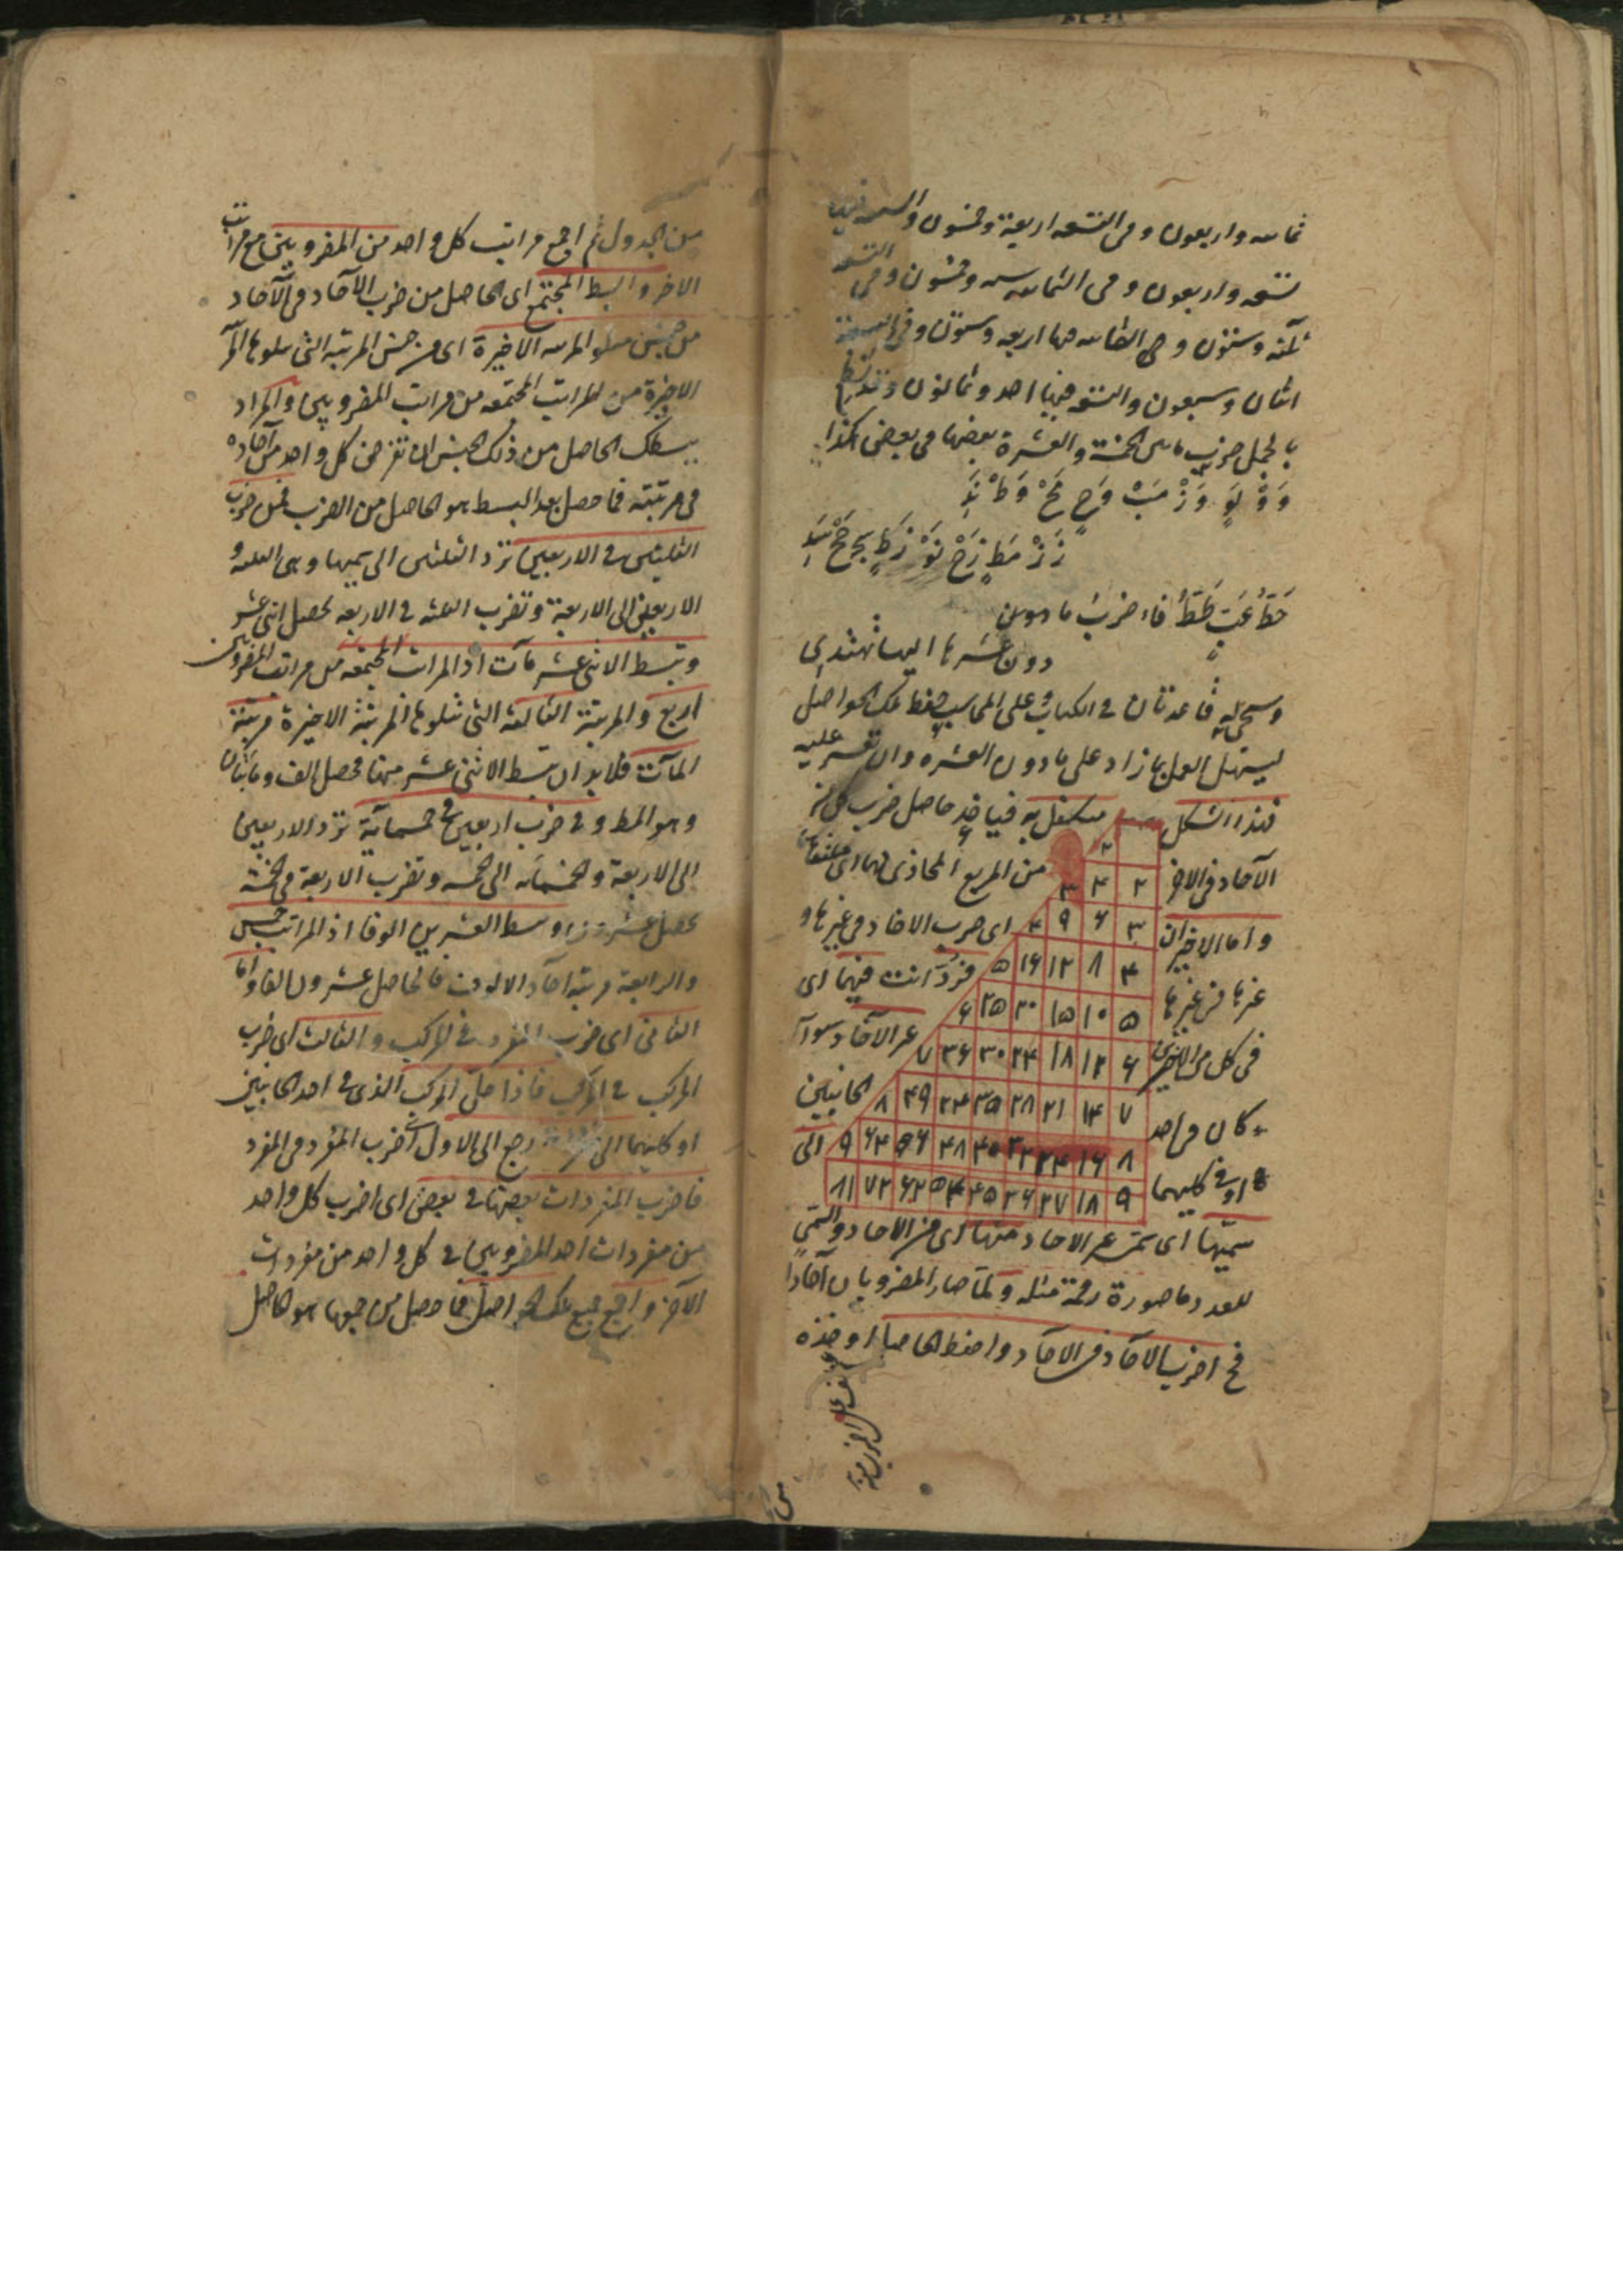 ثمانيه واربعون وفى التسعه اربعة وخمسون والسبعه فيها
تسعه واربعون وفى الثمانيه سته وخمسون وفى التسعه
ثلثه وستون وفى الثمانيه فيها اربعه وستون وفى التسعة
اثنان وسبعون والتسعه فيها احد وثمانون وقد نظم
بالجمل ضرب مابين الخمسة والعشرة بعضها فى بعض هكذا
وَوْ لَوٍ وَزْ مَبْ وَحٍ مَحْ وَطْ نَدٍ
زَزْ مَطٍ زَحْ نَوْ زَطٍ سج حَحْ سَدٍ
حَطْ عَبٍ طَطْ فاء ضرب ما
دون عشرها اليها تهتدى
قاعدتان فى الكتاب على المحاسب حفظ تلك الحواصل
ليسهل العمل بما زاد على مادون العشره وان تعسر عليه
فهذا الشكل متكفل به فياخذ حاصل ضرب كل من
الآحاد فى الاخر من المربع المحاذى لهما اى ملتقاهما
واما الاخيران اى ضرب الاحاد فى غيرها و
غيرها فى غيرها فردّ انت فيهما اى
فى كل من الاخيرين غير الآحاد سوآء
كان فى احد الجانبين
او فى كليهما الى
٢
٢ ۴ ٣
٣ ۶ ٩ ۴
۴ ٨ ١٢ ١۶ ۵
۵ ١٠ ١۵ ٢٠ ٢۵ ۶
۶ ١٢ ١٨ ٢۴ ٣٠ ٣۶ ٧
٧ ١۴ ٢١ ٢٨ ٣۵ ۴٢ ۴٩ ٨
٨ ١۶ ٢۴ ٣٢ ۴٠ ۴٨ ۵۶ ۶۴ ٩
٩ ١٨ ٢٧ ٣۶ ۴۵ ۵۴ ۶٣ ٧٢ ٨١
سميّها اى سمىّ غير الاحاد منها اى من الاحاد والسمّى
للعدد ما صورة رقمة مثله ولمّا صار المضروبان آحادا
فح اضرب الآحاد فى الآحاد واحفظ الحاصل او خذه
من الجدول ثم اجمع مراتب كل واحد من المضروبين مع مراتب
الاخر وابسط المجتمع اى الحاصل من ضرب الآحاد فى الآحاد
من جنس متلو المرتبه الاخيرة اى من جنس المرتبه التى تتلوها المرتبة
الاخيرة من المراتب المجتمعه من مراتب المضروبين والمراد
ببسطك الحاصل من ذلك الجنس ان تفرض كل واحد من آحاده
فى مرتبته فما حصل بعد البسط هو الحاصل من الضرب ففى ضرب
الثلثين فى الاربعين تردّ الثلثين الى سميها وهى الثلثه و
الاربعين الى الاربعة وتضرب الثلثه فى الاربعه يحصل اثنى عشر
وتبسط الاثنى عشر مآت اذ المراتب المجتمعه من مراتب المضروبين
اربع والمرتبة الثالثه التى تتلوها المرتبة الاخيرة مرتبة
المآت فلا بد ان تبسط الاثنى عشر منها فحصل الف ومائتان
وهو المط وفى ضرب اربعين فى خمسمآية تردّ الاربعين
الى الاربعة والخمسمائه الى خمسه وتضرب الاربعة فى الخمسة
يحصل عشرون وبسط العشرين الوفا اذ المراتب خمس
والرابعة مرتبة آحاد الالوف فالحاصل عشرون الفا واما
الثانى اى ضرب المفرد فى المركب والثالث اى ضرب
المركب فى المركب فاذا حلّ المركب الذى فى احد الجانبين
او كليهما الى رجع الى الاول اى ضرب المفرد فى المفرد
فاضرب المفردات بعضها فى بعض اى اضرب كل واحد
من مفردات احد المضروبين فى كل واحد من مفردات
الآخر واجمع جميع تلك الحواصل فما حصل من جمعها هو الحاصل